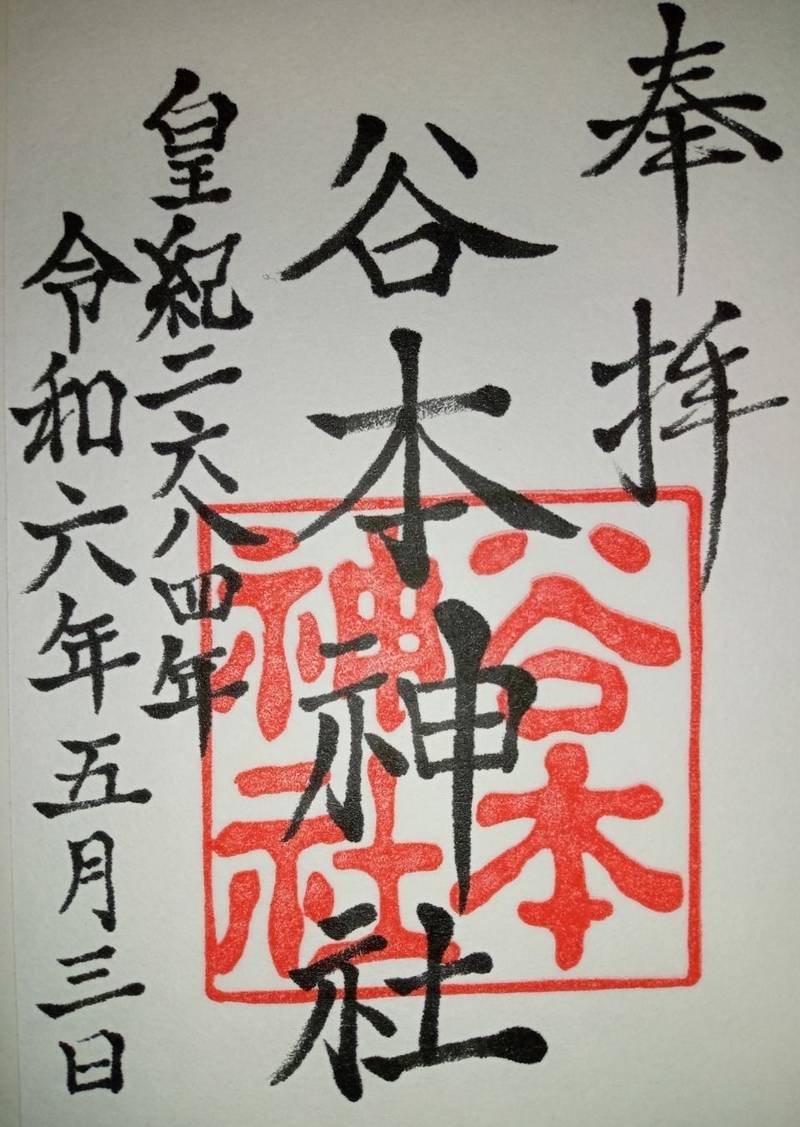 奉拝
谷本神社
谷本神社
皇紀二六八四年
令和六年五月三日